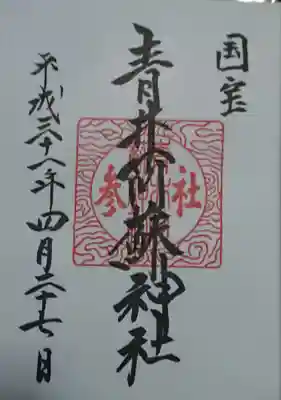 国宝
青井阿蘇神社
参社
平成三十一年四月二十七日